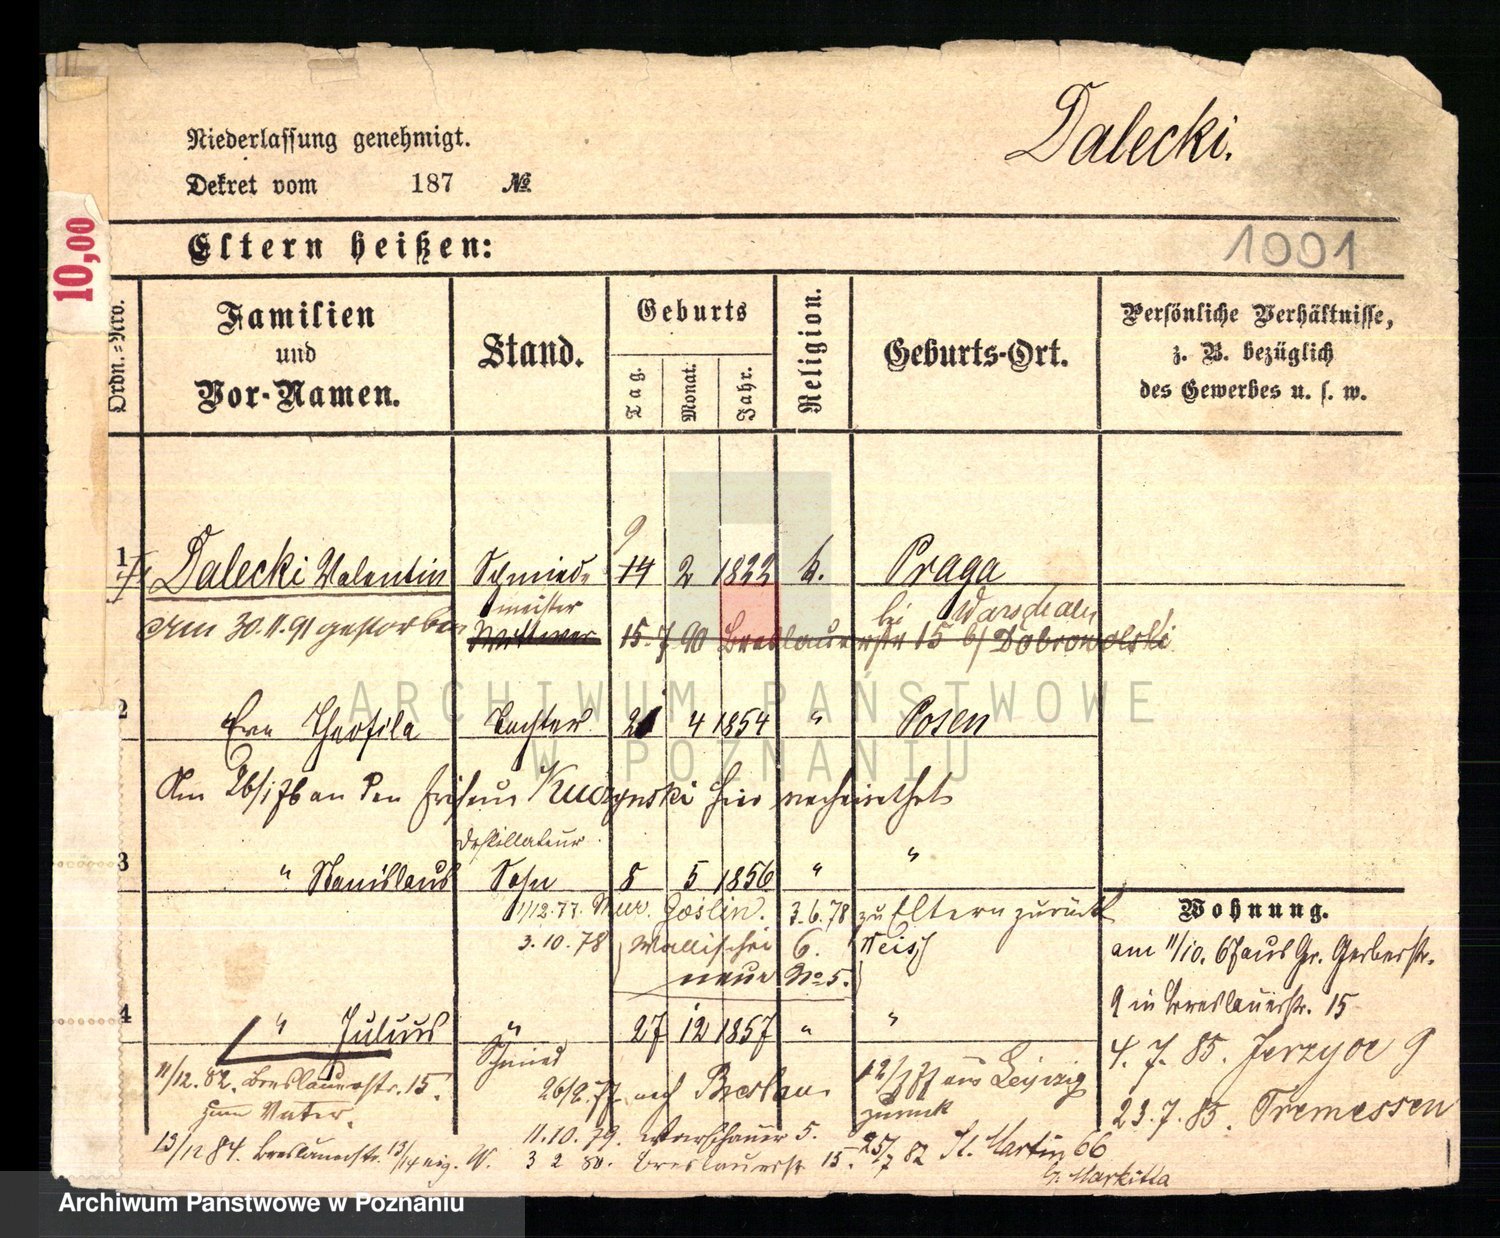 Niederlassung genehmigt.
Dalecki.
Dekret vom 187 №
10,00
Eltern heißen:
1001
Ordn.-Nro.
Familien und Vor-Namen.
Stand.
Geburts
Tag.
Monat.
Jahr.
Religion.
Geburts-Ort.
Persönliche Verhältnisse, z. B. bezüglich des Gewerbes u. s. w.
9
1 Dalecki Valentin Schmiede 14 2 1822 k. Praga
meister bei Warschau
Am 30.11.91 gestorben Wittwer 15.7 90 Breslauerstr 15 b/ Dobrowolski
ARCHIWUM PAŃSTWOWE
W POZNANIU
2 Eva Theofila Tochter 21 4 1854 " Posen
Am 26/1 76 an den Friseur Kuczynski hier verheirathet
Destillateur
3 " Stanislaus Sohn 8 5 1856 " "
1/12.77. Mur. Goslin. 3.6.78 zu Eltern zurück
3.10.78 Wallischei 6. Neisse
neue No 5.
Wohnung.
am 11/10. 67 aus Gr. Gerberstr.
9 in Breslauerstr. 15
4. 7. 85. Jerzyce 9
23.7.85. Tremessen
4 " Julius " 27 12 1857 " "
Schmied
11/12.82. Breslauerstr. 15.
zum Vater.
26/2.77 nach Breslau. 12/3 77 aus Leipzig
zurück
11.10.79. Warschauer 5.
13/12 84. Breslauerstr. 13/14 eig. W. 3 2 80. Breslauerstr 15. 25/7 82 St. Martin 66
b. Markitta
Archiwum Państwowe w Poznaniu